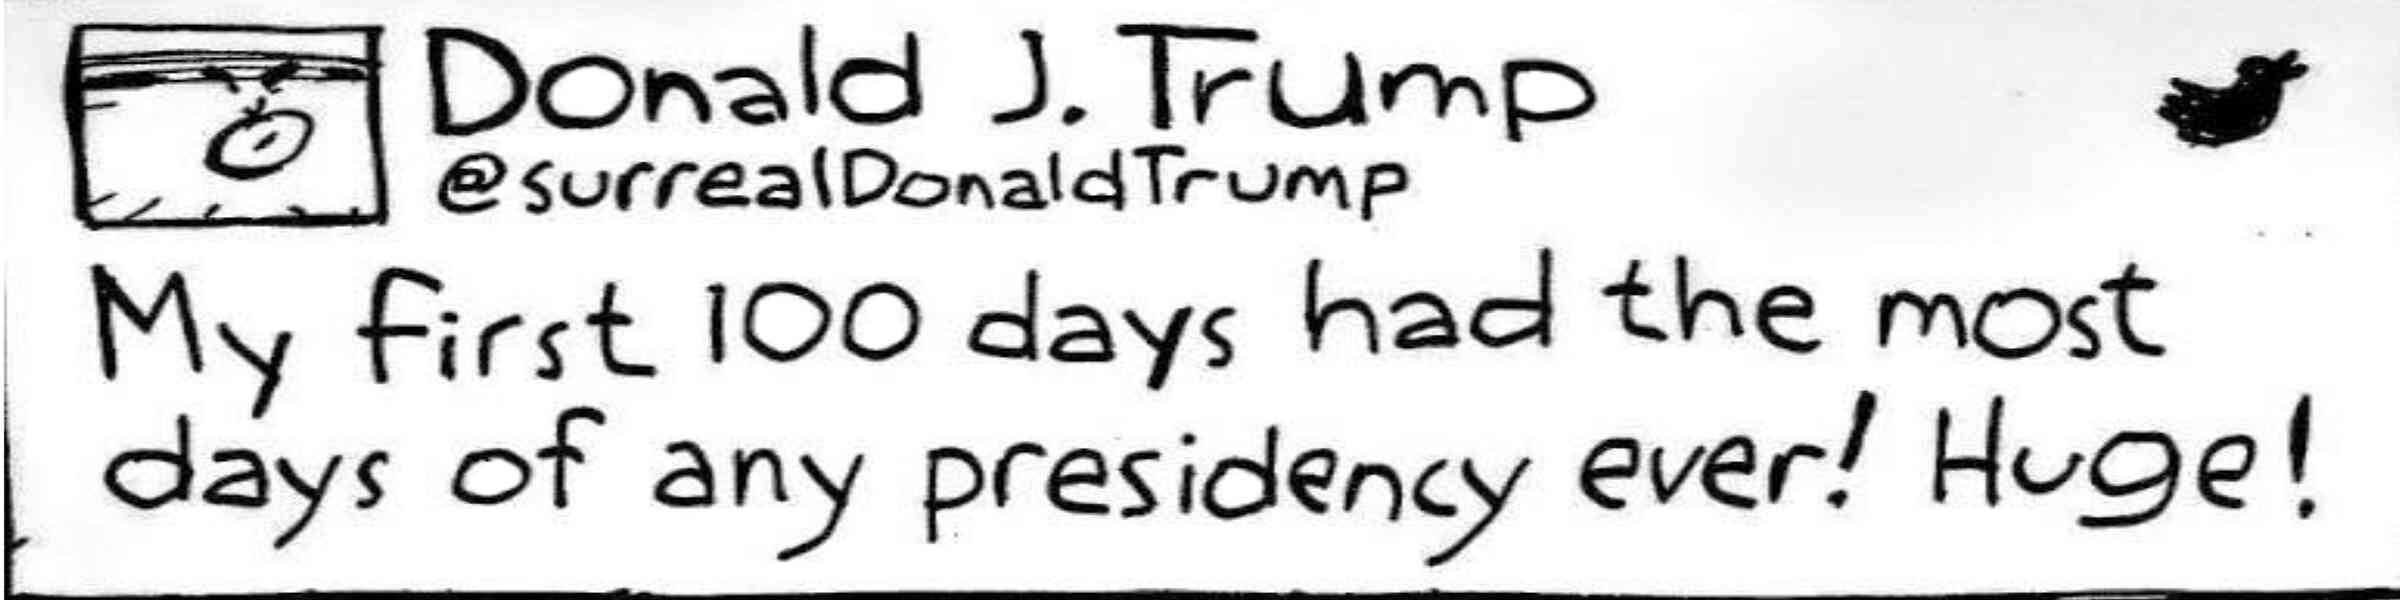 Donald J. Trump
@surrealDonaldTrump
My first 100 days had the most
days of any presidency ever! Huge!